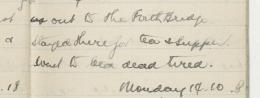 out to the Forth Bridge
stayed there for tea & supper.
Went to bed dead tired.
Monday 14.10.